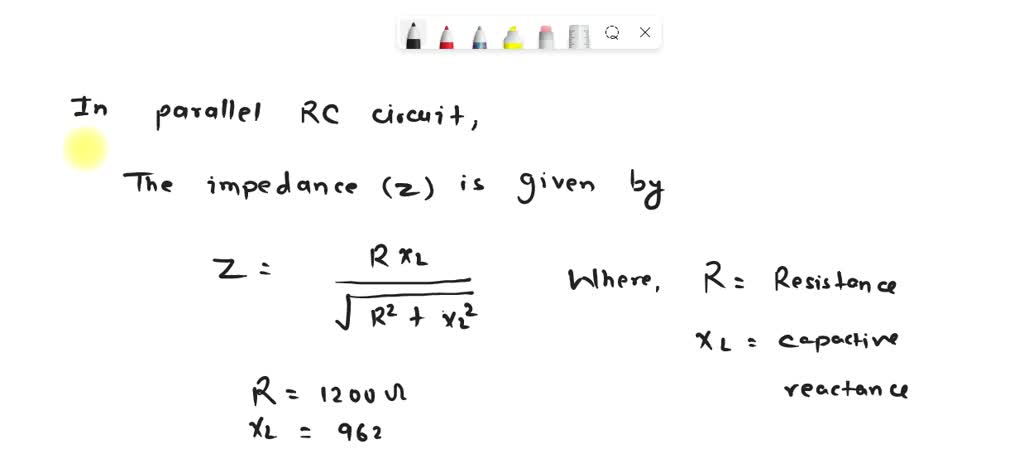 In parallel RC circuit,
The impedance (z) is given by
Z = R XL / √ R² + XL² Where, R = Resistance
XL = capactive
reactance
R = 1200 Ω
XL = 962